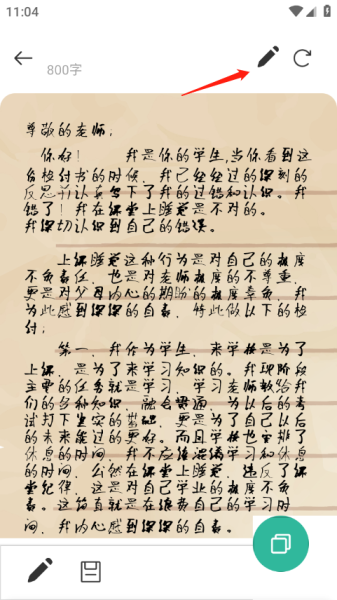 11:04
800字
尊敬的老师：
你好！ 我是你的学生，当你看到这
份检付书的时候，我已经经过的深刻的
反思并认真写下了我的过错和认识。我
错了！我在课堂上睡觉是不对的。
我深切认识到自己的错误。
上课睡觉这种行为是对自己的极度
不负责任，也是对老师极度的不尊重，
更是对父母内心的期盼的极度辜负，我
为此感到深深的自责，特此做以下的检
付：
第一，我作为学生，来学校是为了
上课，是为了来学习知识的。我现阶段
主要的任务就是学习，学习老师教给我
们的各种知识，融会贯通，为以后的考
试打下坚实的基础，更是为了自己以后
的未来能过的更好。而且学校也安排了
休息的时间，我不应该混淆学习和休息
的时间，公然在课堂上睡觉，违反了课
堂纪律，这是对自己学业的极度不负
责。这简直就是在浪费自己的学习时
间，我内心感到深深的自责。